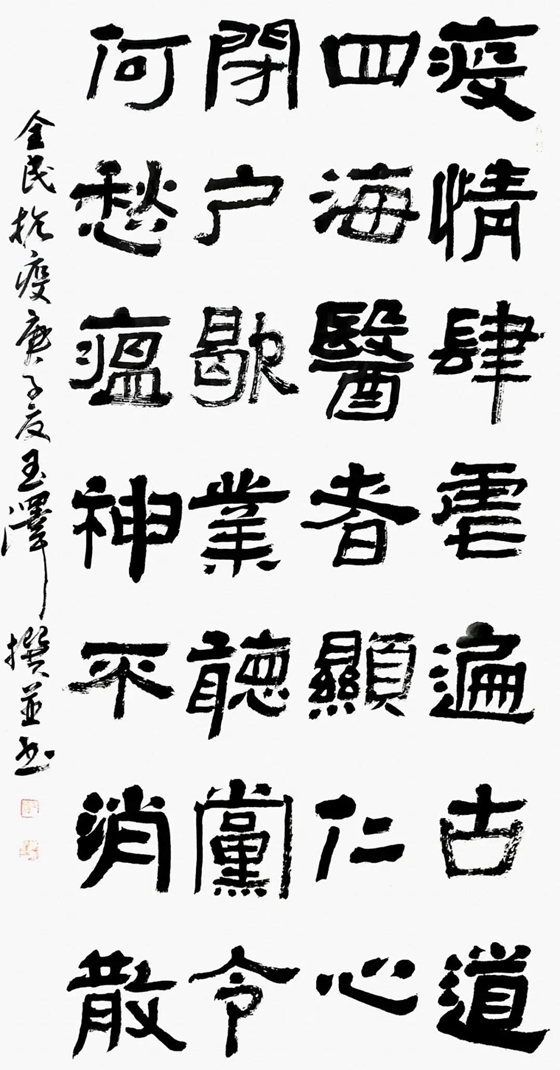 疫情肆虐遍古道
四海醫者顯仁心
閉户歇業聽黨令
何愁瘟神不消散
全民抗疫庚子夏玉澤撰並书